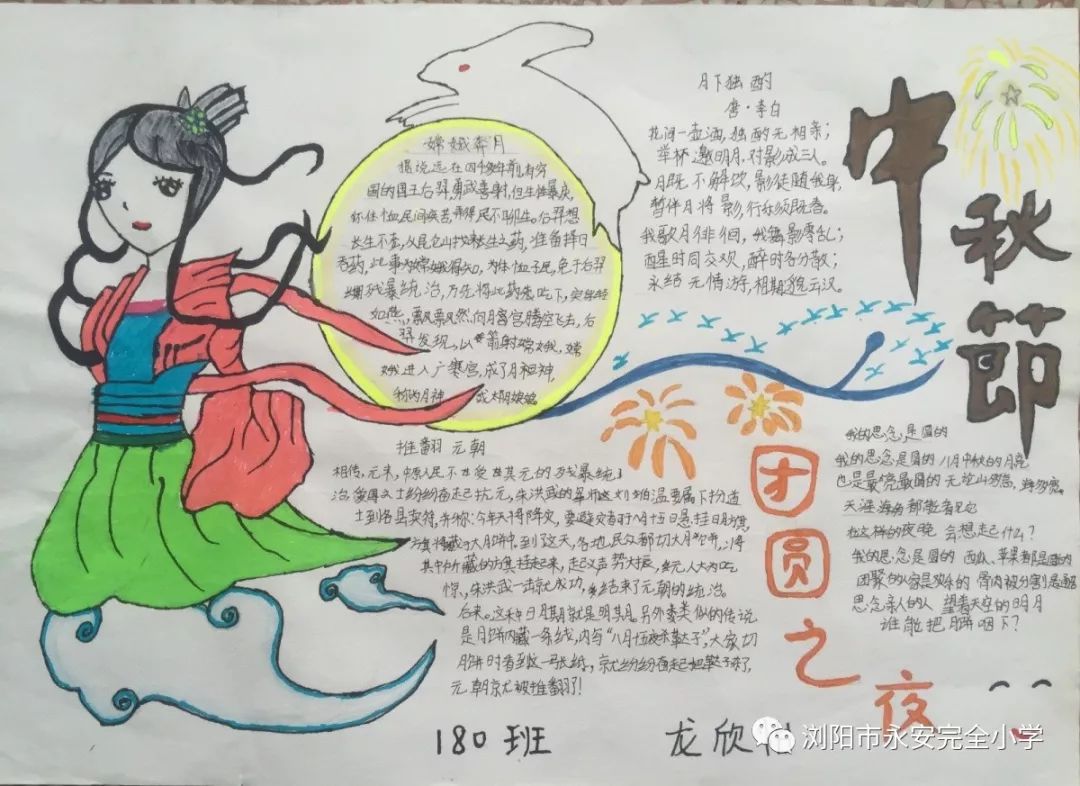 中
秋
節
嫦娥奔月
据说远在四千多年前,有穷
国的国王后羿,勇武善射,但生性暴戾,
不体恤民间疾苦,弄得民不聊生。后羿想
长生不老,从昆仑山找来长生之药,准备择日
吞药,此事为嫦娥得知,为体恤子民,免于后羿
残暴统治,乃先将此药吃下,突然轻
如燕,飘飘然向月宫腾空飞去,后
羿发现,以箭射嫦娥,嫦
娥进入广寒宫,成了月神,
称为月神
月下独酌
唐·李白
花间一壶酒,独酌无相亲;
举杯邀明月,对影成三人。
月既不解饮,影徒随我身,
暂伴月将影,行乐须既春。
我歌月徘徊,我舞影零乱;
醒星时同交欢,醉时各分散;
永结无情游,相期邈云汉。
推翻元朝
相传,元末,中原人民不甘受其元的残暴统
治纷纷起抗元,朱洪武的属下扮道
士到各县卖符,并称:今年天将降灾,要避灾者于八月十五日悬挂日月旗,
方旗将藏于大月饼中,到了这天,各地民众都切大月饼,将
其中所藏的方旗挂起来,起义声势大振,元人大为吃
惊,朱洪武一击就成功,结束了元朝的统治。
后来。这种日月旗就是明旗。另外类似的传说
是月饼内藏一条线,内写“八月十五夜杀鞑子”,大家切
月饼时看到这一张纸,就纷纷奋起把鞑子杀了,
元朝就被推翻了!
团
圆
之
夜
我的思念是圆的
我的思念是圆的 八月中秋的月亮
也是最亮最圆的 无论山多高,海多宽
天涯海角都能看见它
在这样的夜晚 会想起什么?
我的思念是圆的 西瓜、苹果都是圆的
团聚的人家是欢乐的 骨肉被分割是
思念亲人的人 望着天空的明月
谁能把月饼咽下?
180班
龙欣
浏阳市永安完全小学